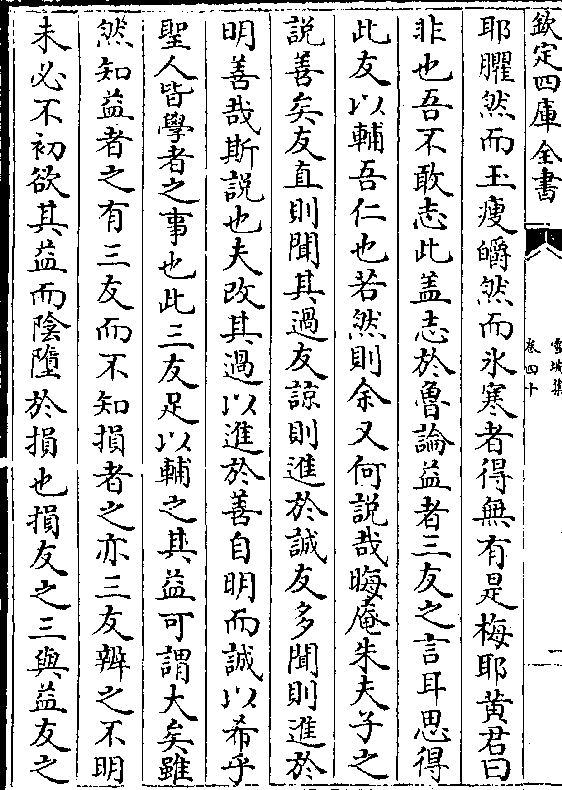 欽定四庫全書
卷四十
耶臞然而玉瘦皭然而氷寒者得無有是梅耶黄君曰
非也吾不敢志此盖志於魯論益者三友之言耳思得
此友以輔吾仁也若然則余又何說哉晦庵朱夫子之
說善矣友直則聞其過友諒則進於誠友多聞則進於
明善哉斯說也夫改其過以進於善自明而誠以希乎
聖人皆學者之事也此三友足以輔之其益可謂大矣雖
然知益者之有三友而不知損者之亦三友辨之不明
未必不初欲其益而陰墮於損也損友之三與益友之